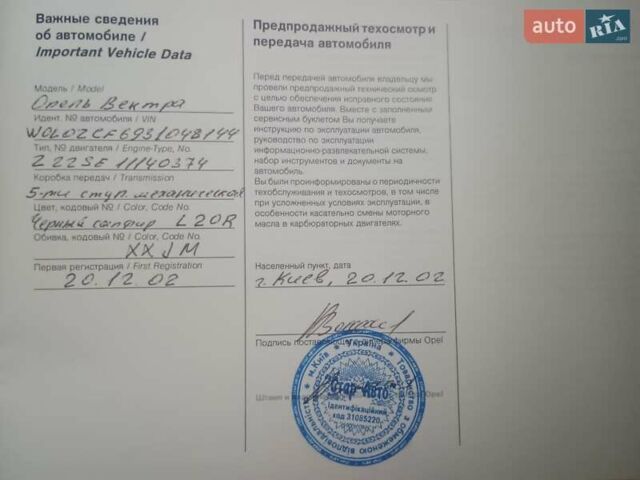 Важные сведения
об автомобиле /
Important Vehicle Data
Модель / Model
Опель Вектра
Идент. № автомобиля / VIN
W0L0ZCF6931048144
Тип, № двигателя / Engine-Type, No.
Z 22SE 11140374
Коробка передач / Transmission
5-ти ступ. механическая
Цвет, кодовый № / Color, Code No.
Черный сапфир L20R
Обивка, кодовый № / Color, Code No.
XXJM
Первая регистрация / First Registration
20.12.02
Предпродажный техосмотр и
передача автомобиля
Перед передачей автомобиля владельцу мы
провели предпродажный технический осмотр
с целью обеспечения исправного состояния
Вашего автомобиля. Вместе с заполненным
сервисным буклетом Вы получаете
инструкцию по эксплуатации автомобиля,
руководство по эксплуатации
информационно-развлекательной системы,
набор инструментов и документы на
автомобиль.
Вы были проинформированы о периодичности
техобслуживания и техосмотров, в том числе
при усложненных условиях эксплуатации, в
особенности касательно смены моторного
масла в карбюраторных двигателях.
Населенный пункт, дата
г. Киев, 20.12.02
Подпись фирмы Opel
Opel
м.Київ * Україна * Товариство з обмеженою відповідальністю
"Стар-Авто"
Ідентифікаційний
код 31085220
auto RIA .com